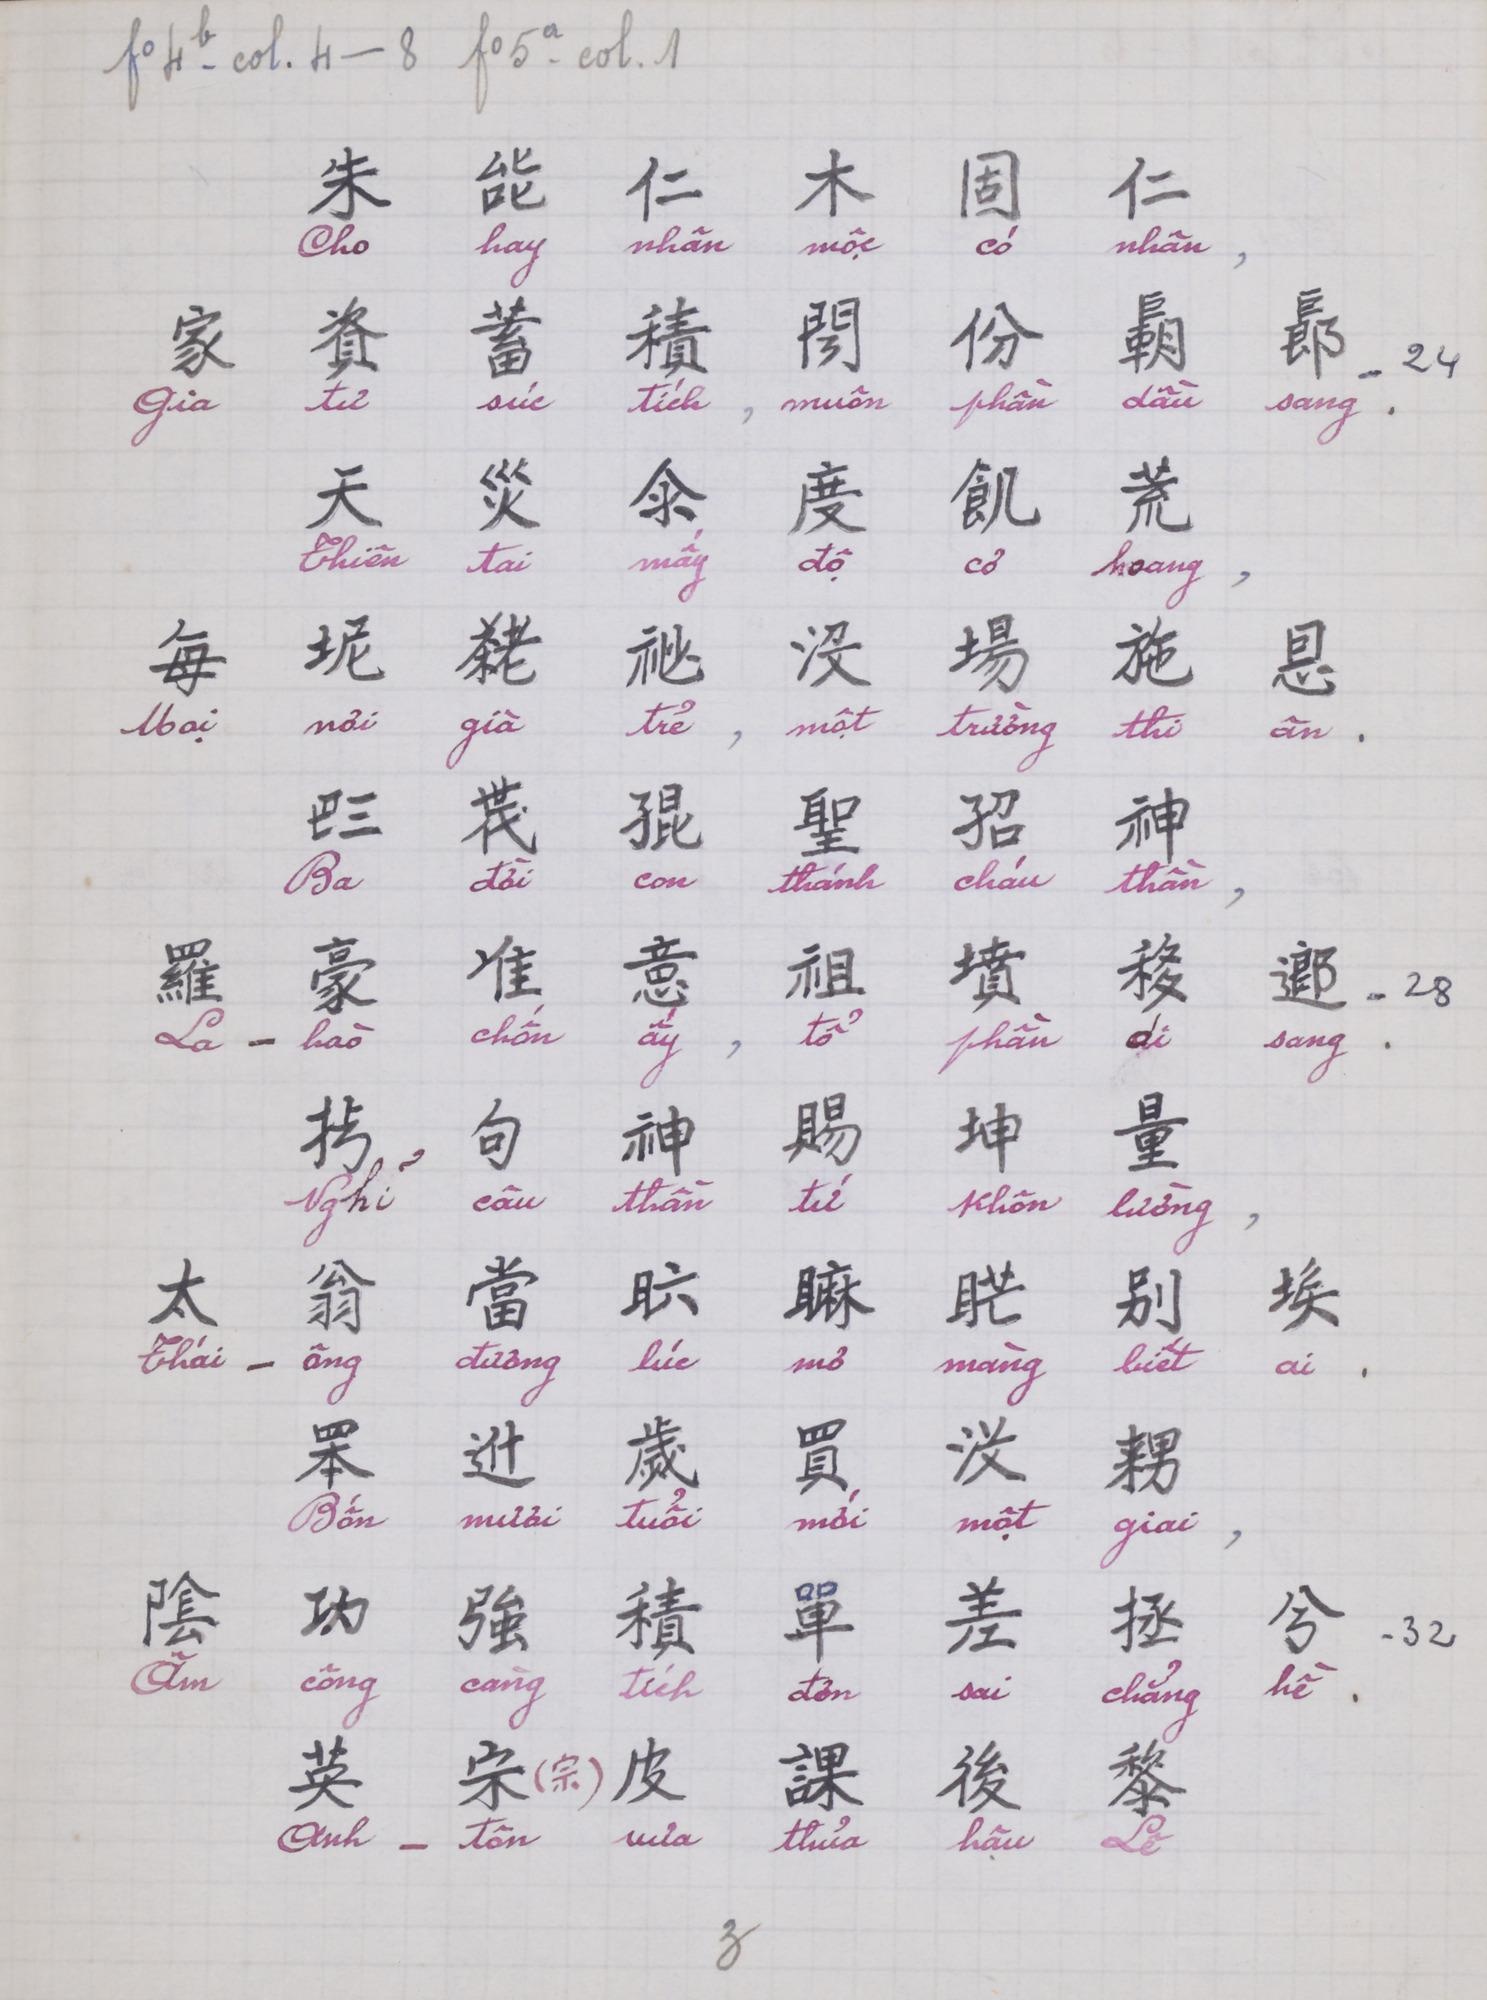 fº 4ᵇ- col. 4 — 8 fº 5ᵃ- col. 1
朱 能 仁 木 固 仁
Cho hay nhân mộc có nhân,
家 資 蓄 積 閍 份 䎠 郞 - 24
Gia tư súc tích, muôn phần dầu sang.
天 災 氽 度 飢 荒
Thiên tai mấy độ cơ hoang,
每 坭 𦓅 祕 没 場 施 恩
Mọi nơi già trẻ, một trường thi ân.
𠀧 𦭒 𡥵 聖 𡥙 神
Ba đời con thánh cháu thần,
羅 豪 准 意 祖 墳 移 𨖅 - 28
La - hào chốn ấy, tổ phần di sang.
句 神 賜 坤 量
Nghỉ câu thần tứ khôn lường,
太 翁 當 𣅶 𥊚 𥇀 别 埃
Thái - ông đương lúc mơ màng biết ai.
𦊚 𨑮 歲 買 没 𪟦
Bốn mươi tuổi mới một giai,
陰 功 強 積 單 差 拯 兮 - 32
Âm công càng tích đơn sai chẳng hề.
英 宗 (宗) 皮 課 後 黎
Anh - tôn vừa thủa hậu Lê
3